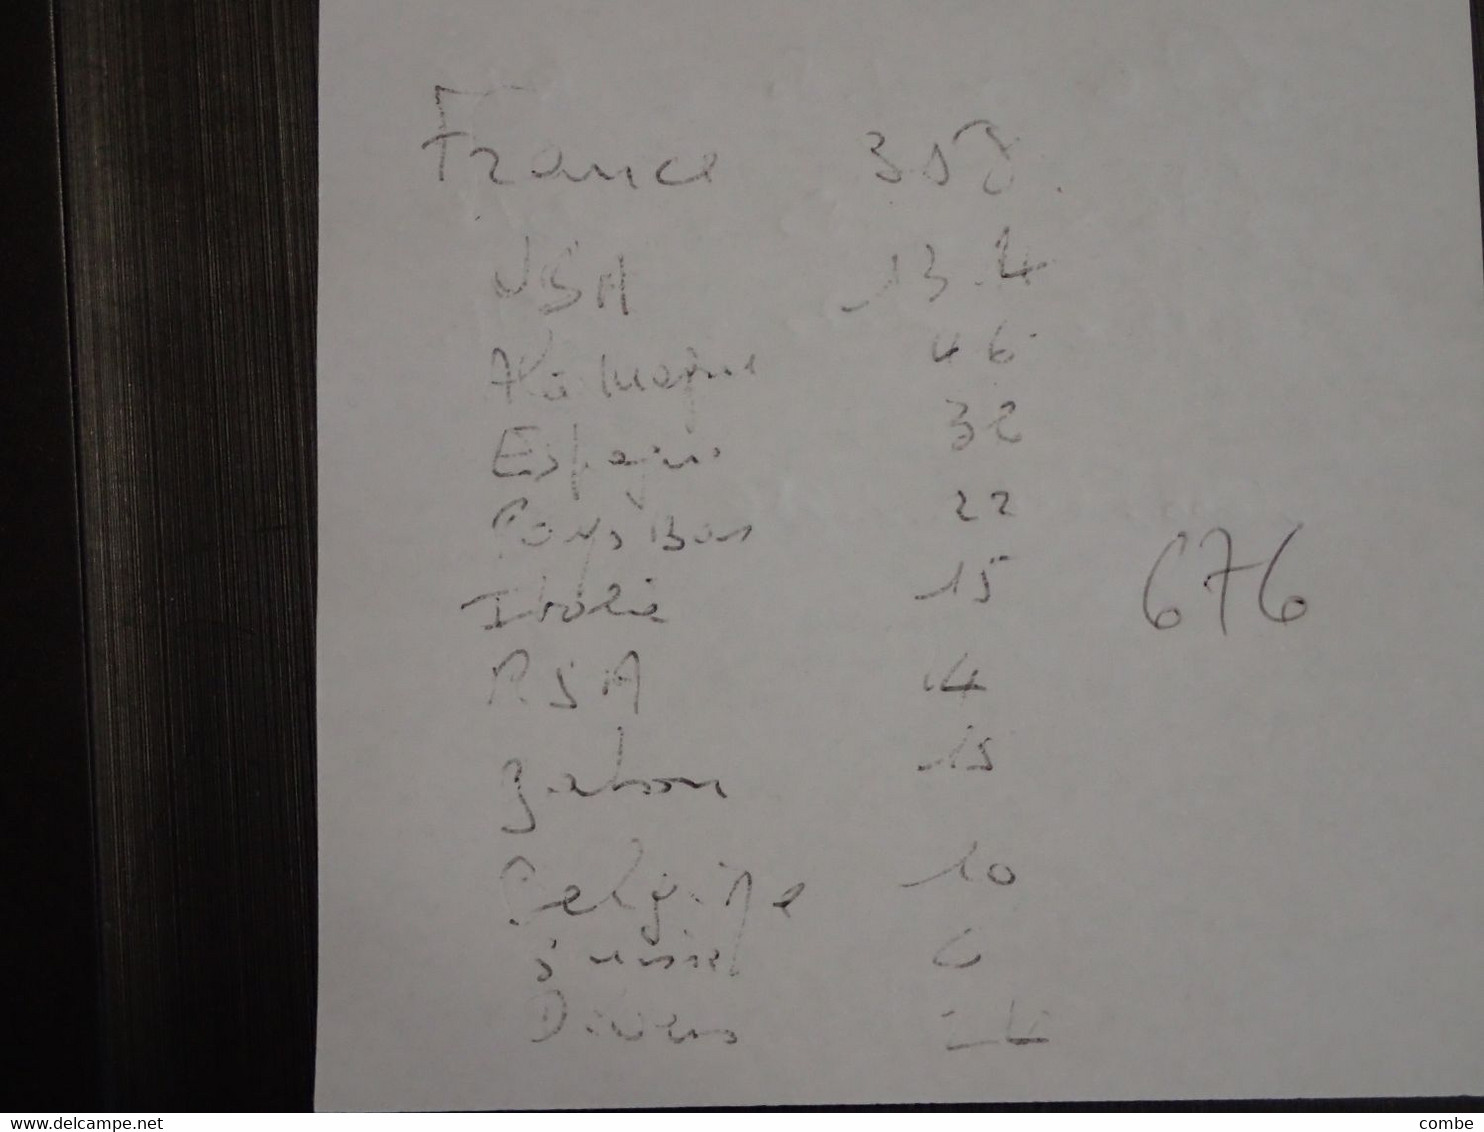 France 358
USA 134
Allemagne 46
Espagne 32
Pays Bas 22
676
Italie 15
RSA 14
gabon 15
Belgique 10
Suisse 6
Divers 24
www.delcampe.net
combe